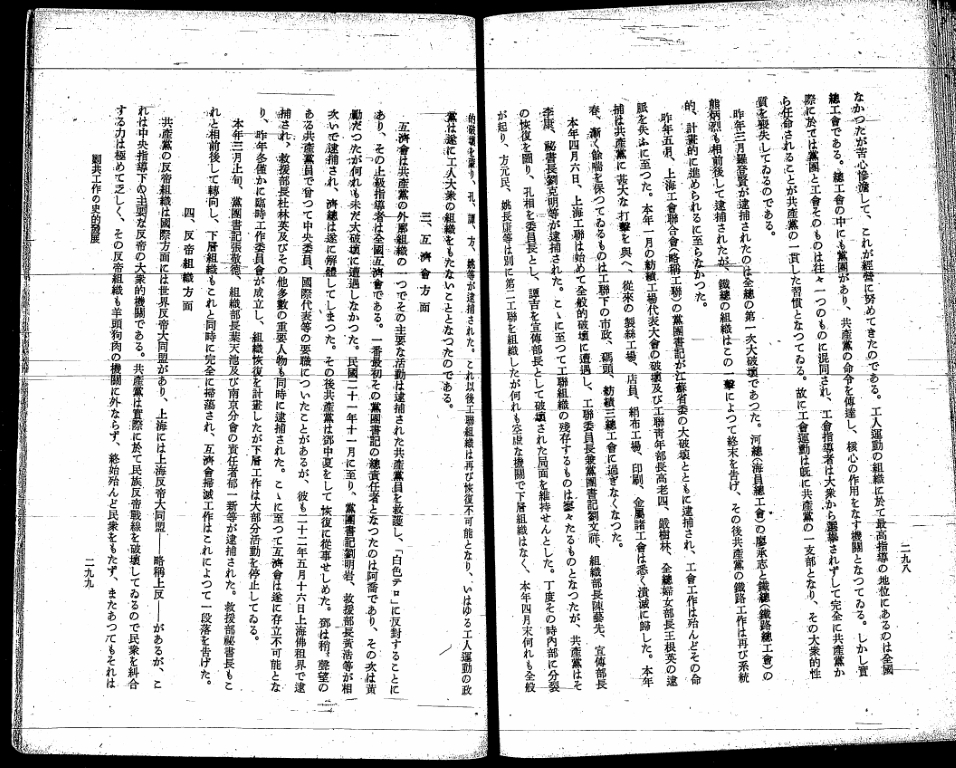 二九八
なかつたが苦心慘澹して、これが經營に努めてきたのである。工人運動の組織に於て最高指導の地位にあるのは全國
總工會である。總工會の中にも黨團があり、共產黨の命令を傳達し、核心の作用をなす機關となつてゐる。しかし實
際に於ては黨團と工會そのものは往々一つのものに混同され、工會指導者は大衆から選擧されずして完全に共產黨か
ら任命されることが共產黨の一貫した習慣となつてゐる。故に工會運動は既に共產黨の一支部となり、その大衆的性
質を喪失してゐるのである。
昨年三月羅登賢が逮捕されたのは全總の第一次大破壞であつた。河總(海員總工會)の廖承志と鐵總(鐵路總工會)の
熊炳烈も相前後して逮捕されたが、鐵總の組織はこの一擊によつて終末を告げ、その後共產黨の鐵路工作は再び系統
的、計畫的に進められるに至らなかつた。
昨年五月、上海工會聯合會(略稱工聯)の黨團書記が江蘇省委の大破壞とともに逮捕され、工會工作は殆んどその命
脈を失ふに至つた。本年一月の紡積工場代表大會の破壞及び工聯青年部長高老四、嚴樹林、全總婦女部長王根英の逮
捕は共產黨に甚大な打擊を與へ、從來の製絲工場、店員、絹布工場、印刷、金屬諸工會は悉く潰滅に歸した。本年
春、漸く餘喘を保つてゐるものは工聯下の市政、碼頭、紡積三總工會に過ぎなくなつた。
本年四月六日、上海工聯は始めて全般的破壞に遭遇し、工聯委員長兼黨團書記劉文祥、組織部長陳藝先、宣傳部長
李康、祕書長劉克明等が逮捕された。こゝに至つて工聯組織の殘存するものは寥々たるものとなつたが、共產黨はそ
の恢復を圖り、孔相を委員長とし、譚吉を宣傳部長として破壞された局面を維持せんとした。丁度その時內部に分裂
が起り、方元民、姚長庚等は別に第二工聯を組織したが何れも空虛な機關で下層組織はなく、本年四月末何れも全般
的破壞を蒙り、孔、譚、方、姚等が逮捕された。これ以後工聯組織は再び恢復不可能となり、いはゆる工人運動の政
黨は遂に工人大衆の組織をもたないこととなつたのである。
三、互濟會方面
互濟會は共產黨の外廓組織の一つでその主要な活動は逮捕された共產黨員を救護し、「白色テロ」に反對することに
あり、その上級指導者は全國互濟會である。一番最初その黨團書記の總責任者となつたのは阿喬であり、その次は黃
勵だつたが何れも未だ大破壞に遭遇しなかつた。民國二十一年十一月に至り、黨團書記劉明岩、救援部長黃浩等が相
次いで逮捕され、濟總は遂に解體してしまつた。その後共產黨は鄧中夏をして恢復に從事せしめた。鄧は稍々聲望の
ある共產黨員で曾つて中央委員、國際代表等の要職についたことがあるが、彼も二十二年五月十六日上海佛租界で逮
捕され、救援部長杜林英及びその他多數の重要人物も同時に逮捕された。こゝに至つて互濟會は遂に存立不可能とな
り、昨年冬僅かに臨時工作委員會が成立し、組織恢復を計畫したが下層工作は大部分活動を停止してゐる。
本年三月上旬、黨團書記張敬德、組織部長葉天池及び南京分會の責任者郁一新等が逮捕された。救援部祕書長もこ
れと相前後して轉向し、下層組織もこれと同時に完全に掃蕩され、互濟會掃滅工作はこれによつて一段落を告げた。
四、反帝組織方面
共產黨の反帝組織は國際方面には世界反帝大同盟があり、上海には上海反帝大同盟――略稱上反――があるが、こ
れは中央指導下の主要な反帝の大衆的機關である。共產黨は實際に於て民族反帝戰線を破壞してゐるので民衆を糾合
する力は極めて乏しく、その反帝組織も羊頭狗肉の機關に外ならず、終始殆んど民衆をもたず、またあつてもそれは
剿共工作の史的發展
二九九